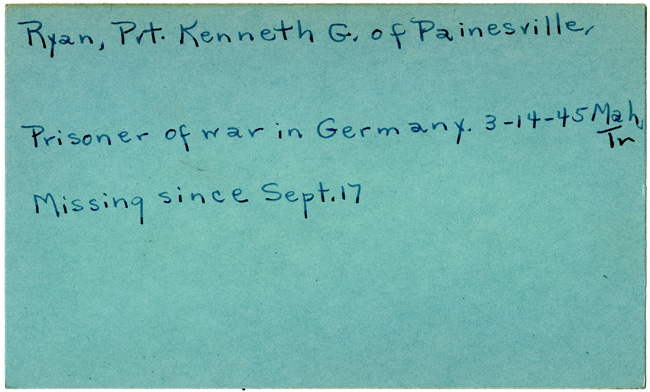 Ryan, Prt. Kenneth G. of Painesville,
Prisoner of war in Germany. 3-14-45 Mah
Tr
Missing since Sept. 17